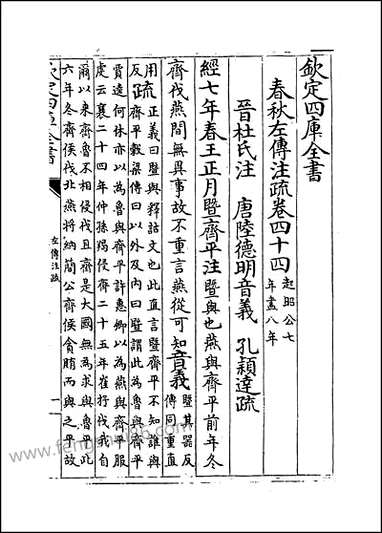 欽定四庫全書
春秋左傳注疏卷四十四
起昭公七
年盡八年
晉杜氏注 唐陸德明音義 孔穎達疏
經七年春王正月暨齊平注暨與也燕與齊平前年冬
齊伐燕間無異事故不重言燕從可知音義
暨其器反
傳同重直
用
反
疏
正義曰暨與釋詁文也此直言暨齊平不知誰與
齊平穀梁傳曰以外及内曰暨謂此為魯與齊平
賈逵何休亦以為魯與齊平許惠卿以為燕與齊平服
虔云襄二十四年仲孫羯侵齊二十五年崔杼伐我自
爾以來齊魯不相侵伐且齊是大國無為求與魯平此
六年冬齊侯伐北燕將納簡公齊侯貪賄而與之平故
欽定四庫全書
左傳注疏
一